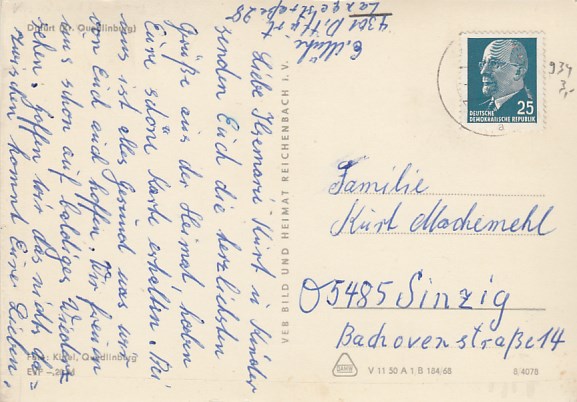 Ditfurt (Kr. Quedlinburg)
4301 Ditfurt
Langestraße 28
Liebe Ilsemarie Kurt u Kinder
senden Euch die herzlichsten
Grüße aus der Heimat, haben
Eure schöne Karte erhalten. Bei
uns ist alles Gesund was wir
von Euch auch hoffen. Wir freuen
uns schon auf baldiges Wieder=
sehen. hoffen wir das nichts da=
zwischen kommt Eure Lieben.
Foto: Kittel, Quedlinburg
VEB BILD UND HEIMAT REICHENBACH I. V.
25
DEUTSCHE
DEMOKRATISCHE REPUBLIK
a
934
3,-
Familie
Kurt Machemehl
5485 Sinzig
Bachovenstraße 14
V 11 50 A 1 B 184/68
8/4078